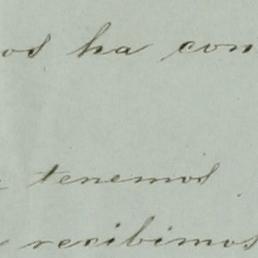 os ha con
tenemos
recibimos